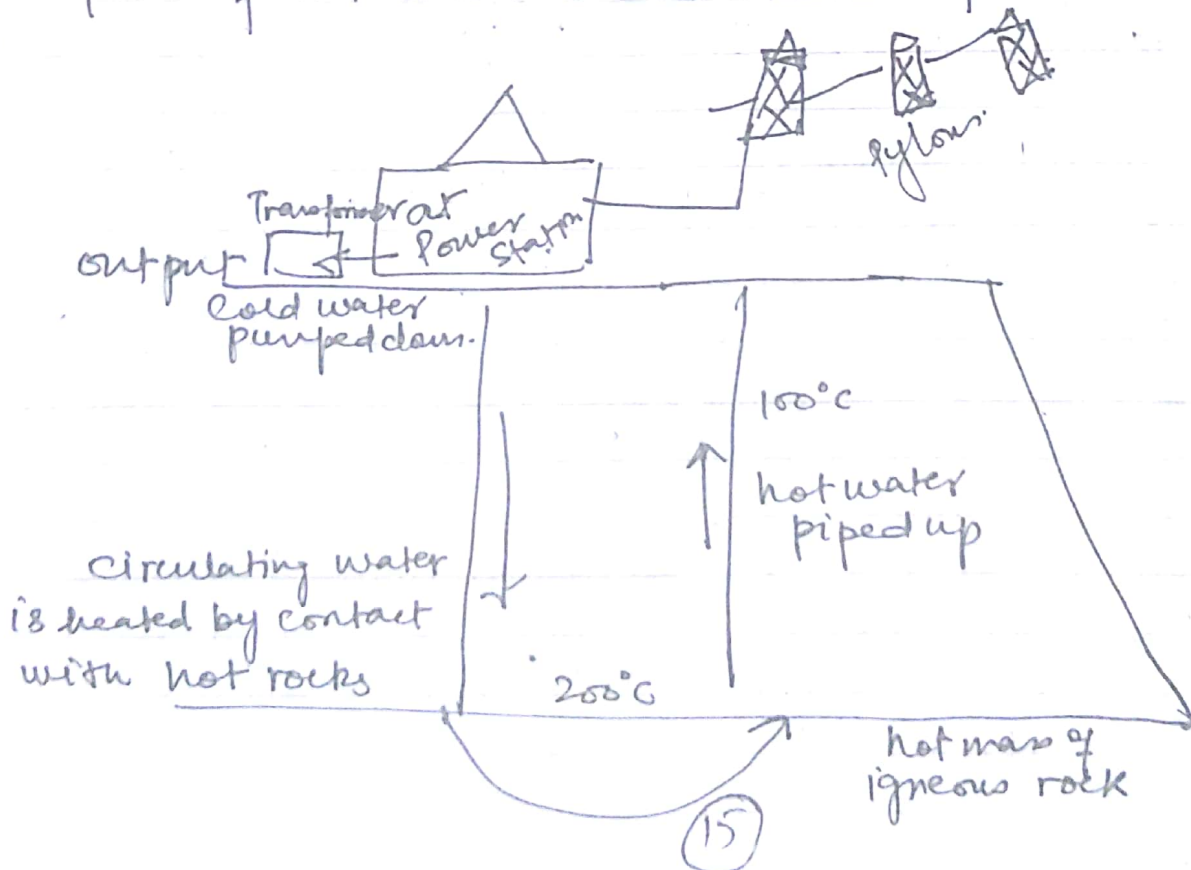 Pylons.
Transformer at
Power
Station
output
Cold water
pumped down.
100°C
hot water
piped up
Circulating water
is heated by contact
with hot rocks
200°C
hot mass of
igneous rock
15